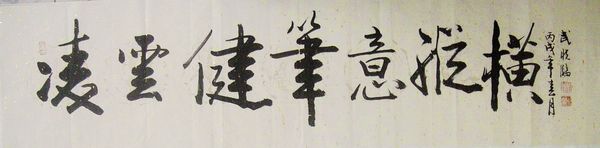 凌雲健筆意縱橫
丙戌年春月
武